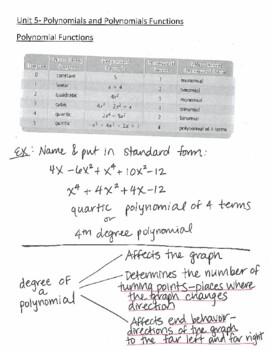 Unit 5- Polynomials and Polynomials Functions
Polynomial Functions
0 constant 5 1 monomial
linear x + 4 2 binomial
2 quadratic 4x² 1 monomial
3 cubic 3 trinomial
4 quartic 2 binomial
5 quartic 4 polynomial of 4 terms
EX: Name & put in standard form:
4x - 6x² + x⁴ + 10x² - 12
x⁴ + 4x² + 4x - 12
quartic polynomial of 4 terms
or
4th degree polynomial
degree of a polynomial
Affects the graph
Determines the number of turning points - places where the graph changes direction
Affects end behavior - directions of the graph to the far left and far right